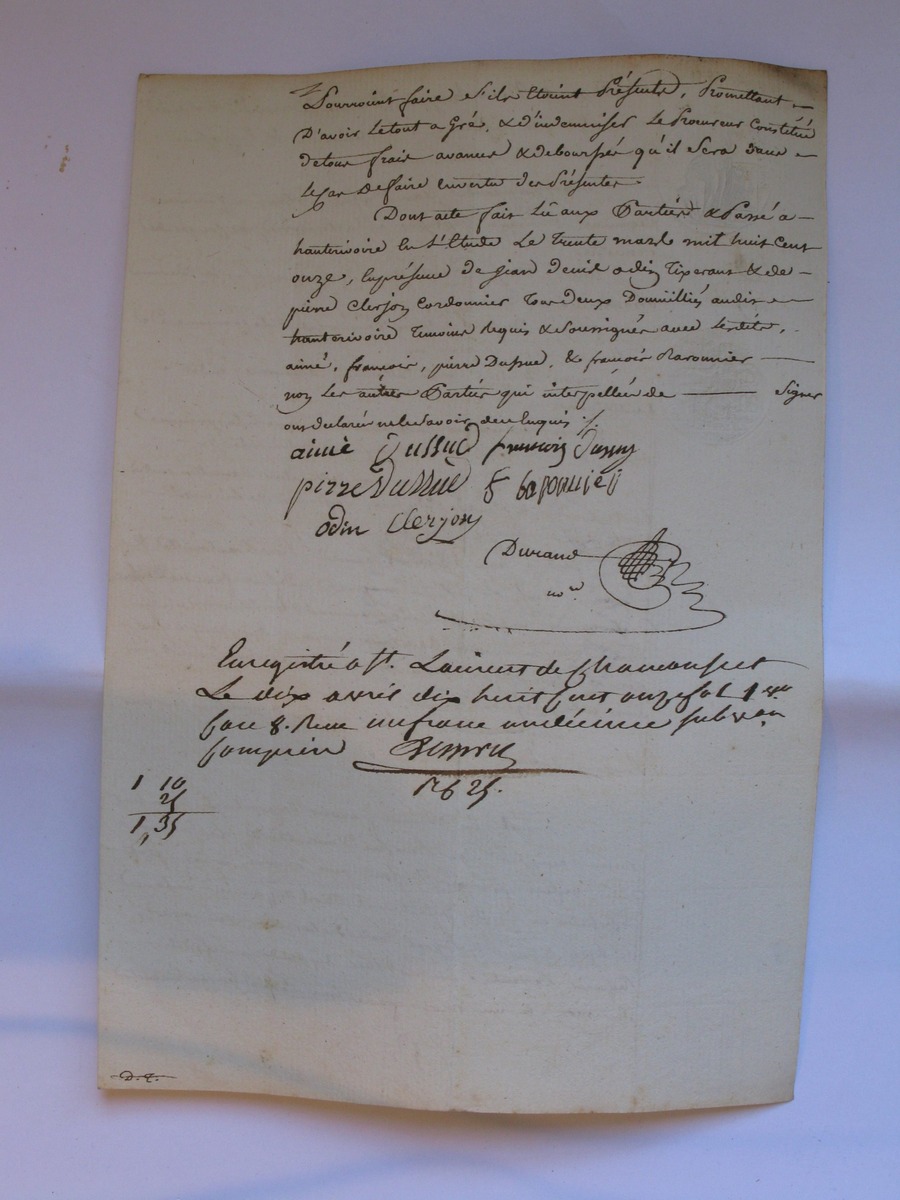 Pourroint faire s'ils Etoint Présents, Promettant
D'avoir Letout a Gré, & d'indemniser Le Procureur Constitué
detous frais avances & deboursés qu'il Sera dans
Le Cas De faire Envertu des Présentes.
Dont acte fait Lû aux Parties & Passé a
hauterivoire En L'Etude Le Trente mars mil huit Cent
onze, En présence de Jean denis odin Tixerant & de
pierre Clerjon Cordonnier Tous deux Domiciliés audit
hauterivoire Temoins Requis & Soussignés avec Lesdits,
aimé, françois, pierre Dussud, & françois
non Les autres Parties qui interpellées de signer
ont declaré ne le savoir de ce Enquis ./.
aimé Dussud françois Dussud
pierre Dussud f
odin Clerjon
Durand
no.re
Enregistré a St. Laurent de Chamousset
Le dix avril dix huit Cent onze fol 1
Case 8. Reçu un franc un décime
Compris
1 10
25
1,35
D. T.